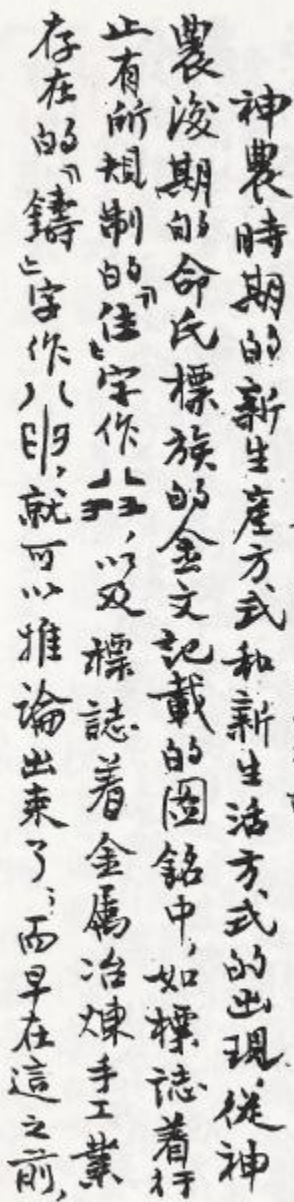 神農時期的新生產方式和新生活方式的出現，從神
農後期的命氏標族的金文記載的圖銘中，如標誌着行
止有所規制的“佳”字作，以及標誌着金屬冶煉手工業
存在的“鑄”字作，就可以推論出来了，而早在這之前，